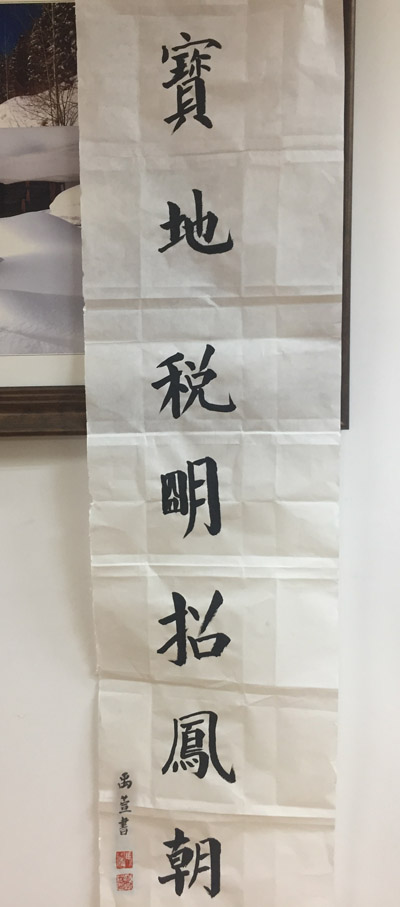 寶地税明招鳳朝
禹萱書